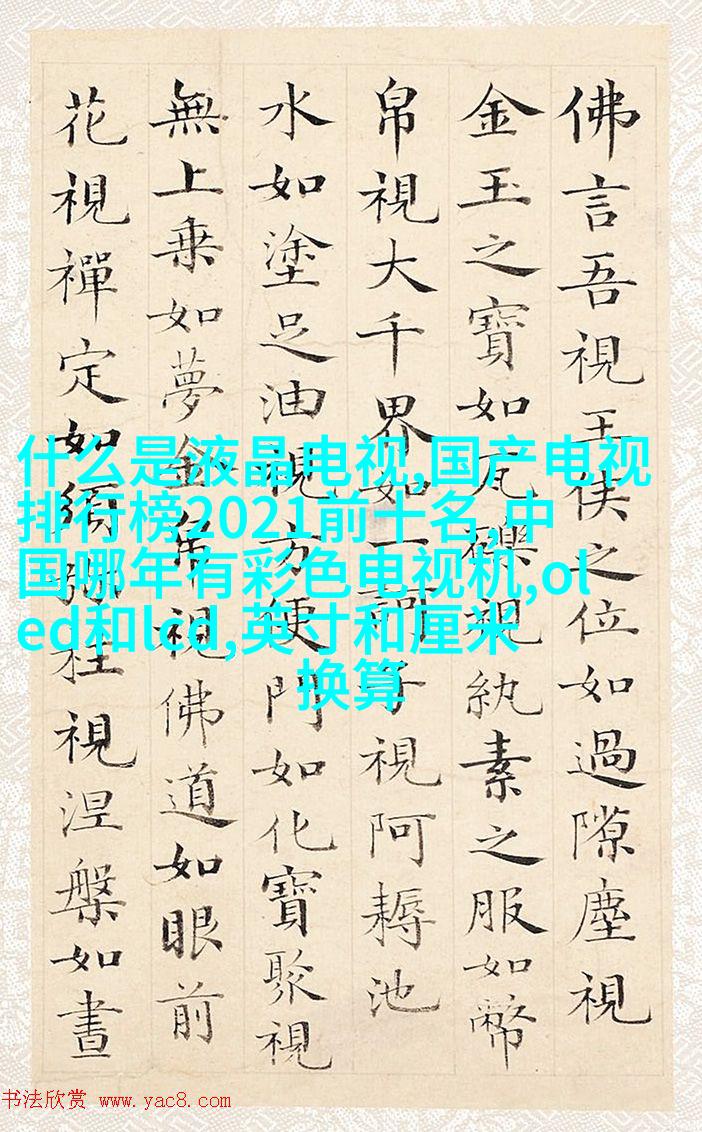 佛言吾視王侯之位如過隙塵視
金玉之寶如瓦礫視紈素之服如幣
帛視大千界如一訶子視阿耨池
水如塗足油視方便門如化寶聚視
無上乗如夢金帛視佛道如眼前
花視禪定如須彌柱視涅槃如晝
什么是液晶电视,国产电视
排行榜2021前十名,中
国哪年有彩色电视机,ol
ed和lcd,英寸和厘米
换算
书法欣赏 www.yac8.com